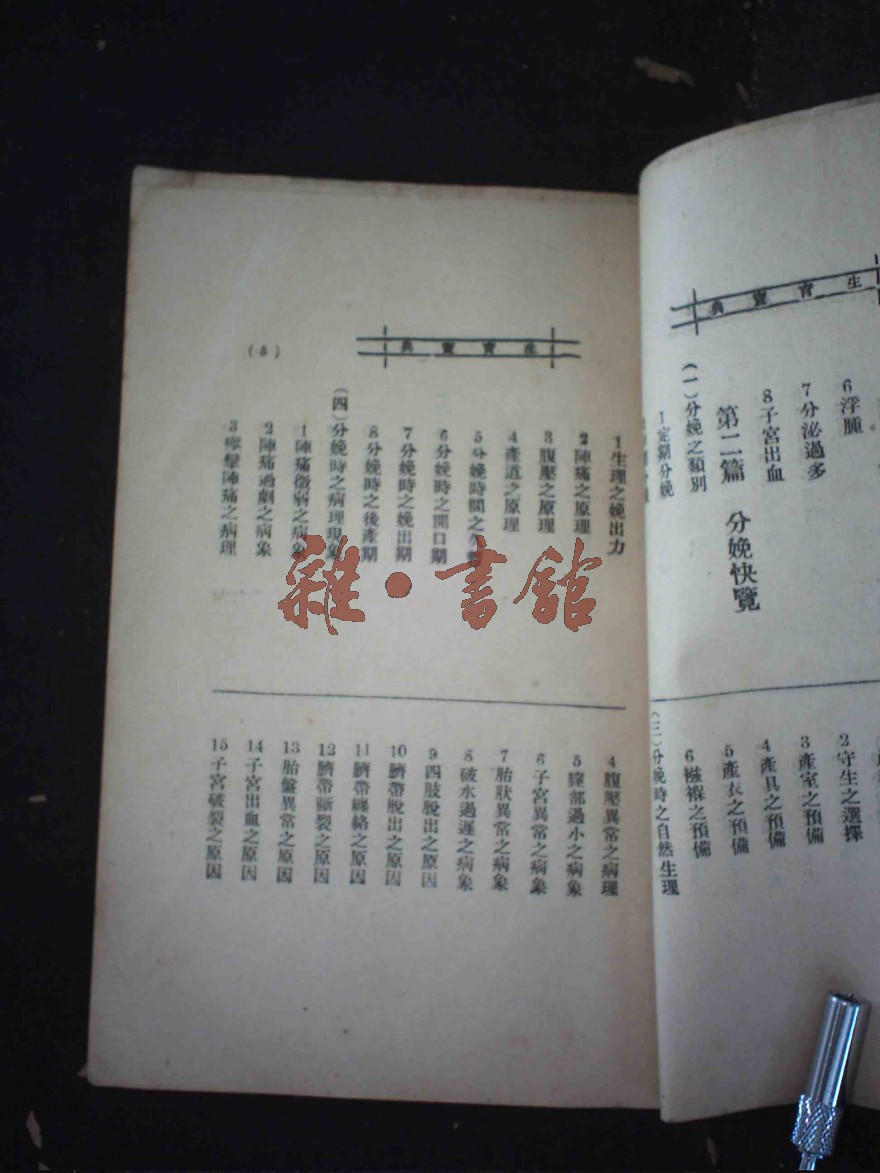 生育寶典
6浮腫
7分泌過多
8子宮出血
第二篇 分娩快覽
(一)分娩之類別
1定期分娩
2守生之選擇
3產室之預備
4產具之預備
5產衣之預備
6襁褓之預備
(三)分娩時之自然生理
生育寶典
(5)
1生理之娩出力
2陣痛之原理
3腹壓之原理
4產道之原理
5分娩時間之
6分娩時之開口期
7分娩時之娩出期
8分娩時之後產期
(四)分娩時之病理現象
1陣痛微弱之病象
2陣痛過劇之病象
3痙攣陣痛之病理
4腹壓異常之病理
5膣部過小之病象
6子宮異常之病象
7胎狀異常之病象
8破水過遲之病象
9四肢脫出之原因
10臍帶脫出之原因
11臍帶纏絡之原因
12臍帶斷裂之原因
13胎盤異常之原因
14子宮出血之原因
15子宮破裂之原因
雜·書館